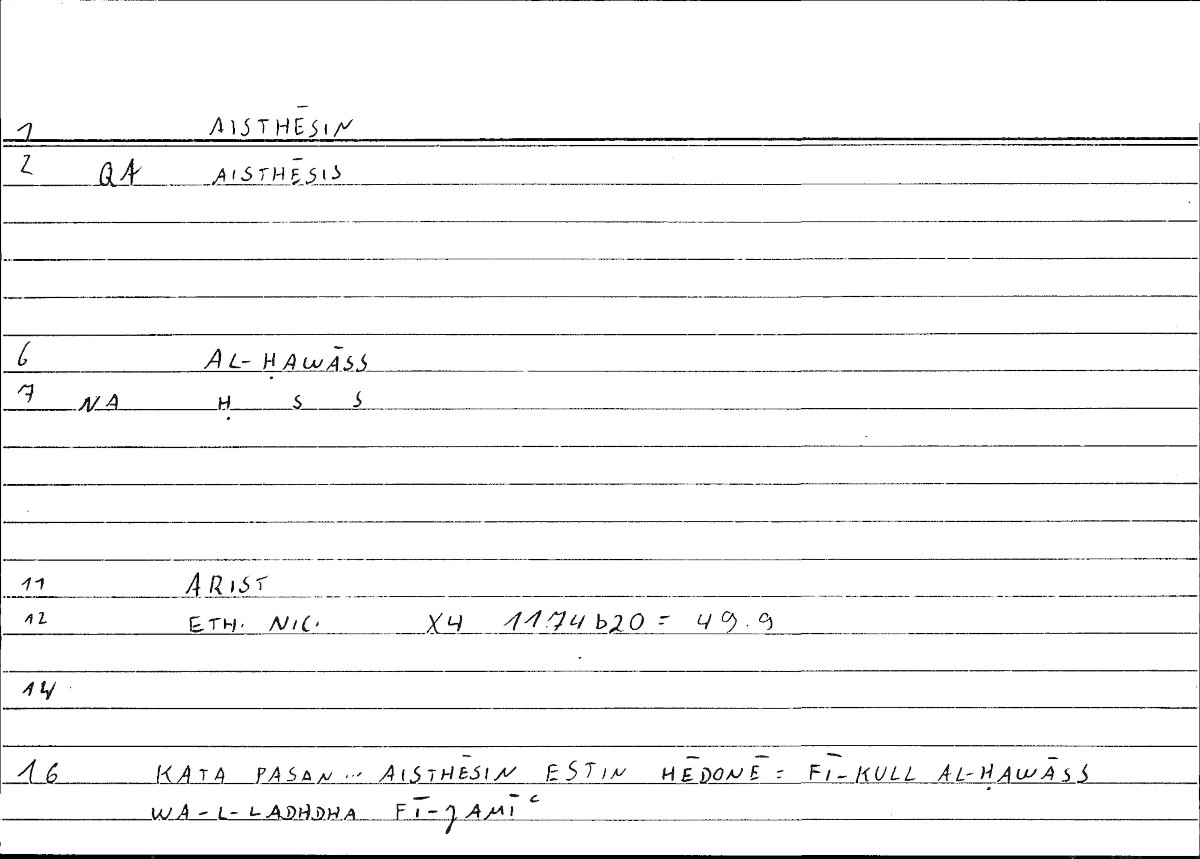 1 AISTHĒSIN
2 QA AISTHĒSIS
6 AL-ḤAWĀSS
7 NA Ḥ S S
11 ARIST
12 ETH. NIC. X4 1174b20 = 49.9
14
16 KATA PASAN... AISTHĒSIN ESTIN HĒDONĒ = FĪ-KULL AL-ḤAWĀSS
WA-L-LADHDHA FĪ-JAMĪʿ